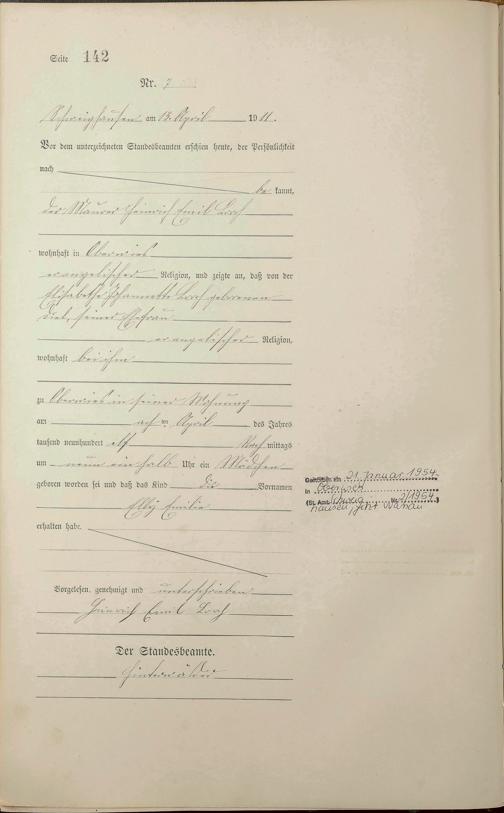 Seite 142
Nr. 7
Schweighausen am 13. April 1911.
Vor dem unterzeichneten Standesbeamten erschien heute, der Persönlichkeit
nach
be kannt,
der Maurer Heinrich Emil Lorch
wohnhaft in Oberwies
evangelischer Religion, und zeigte an, daß von der
Elisabethe Johannette Lorch geborenen
Diel, seiner Ehefrau
evangelischer Religion,
wohnhaft bei ihm
zu Oberwies in seiner Wohnung
am April des Jahres
tausend neunhundert elf Nach mittags
um neun ein halb Uhr ein Mädchen
geboren worden sei und daß das Kind die Vornamen
Elly Emilie
erhalten habe.
Vorgelesen, genehmigt und unterschrieben
Heinrich Emil Lorch
Der Standesbeamte.
Gestorben am 21. Januar 1954
in Oberwies
(St. Amt Schweig Nr. 1/1954)
hausen, jetzt